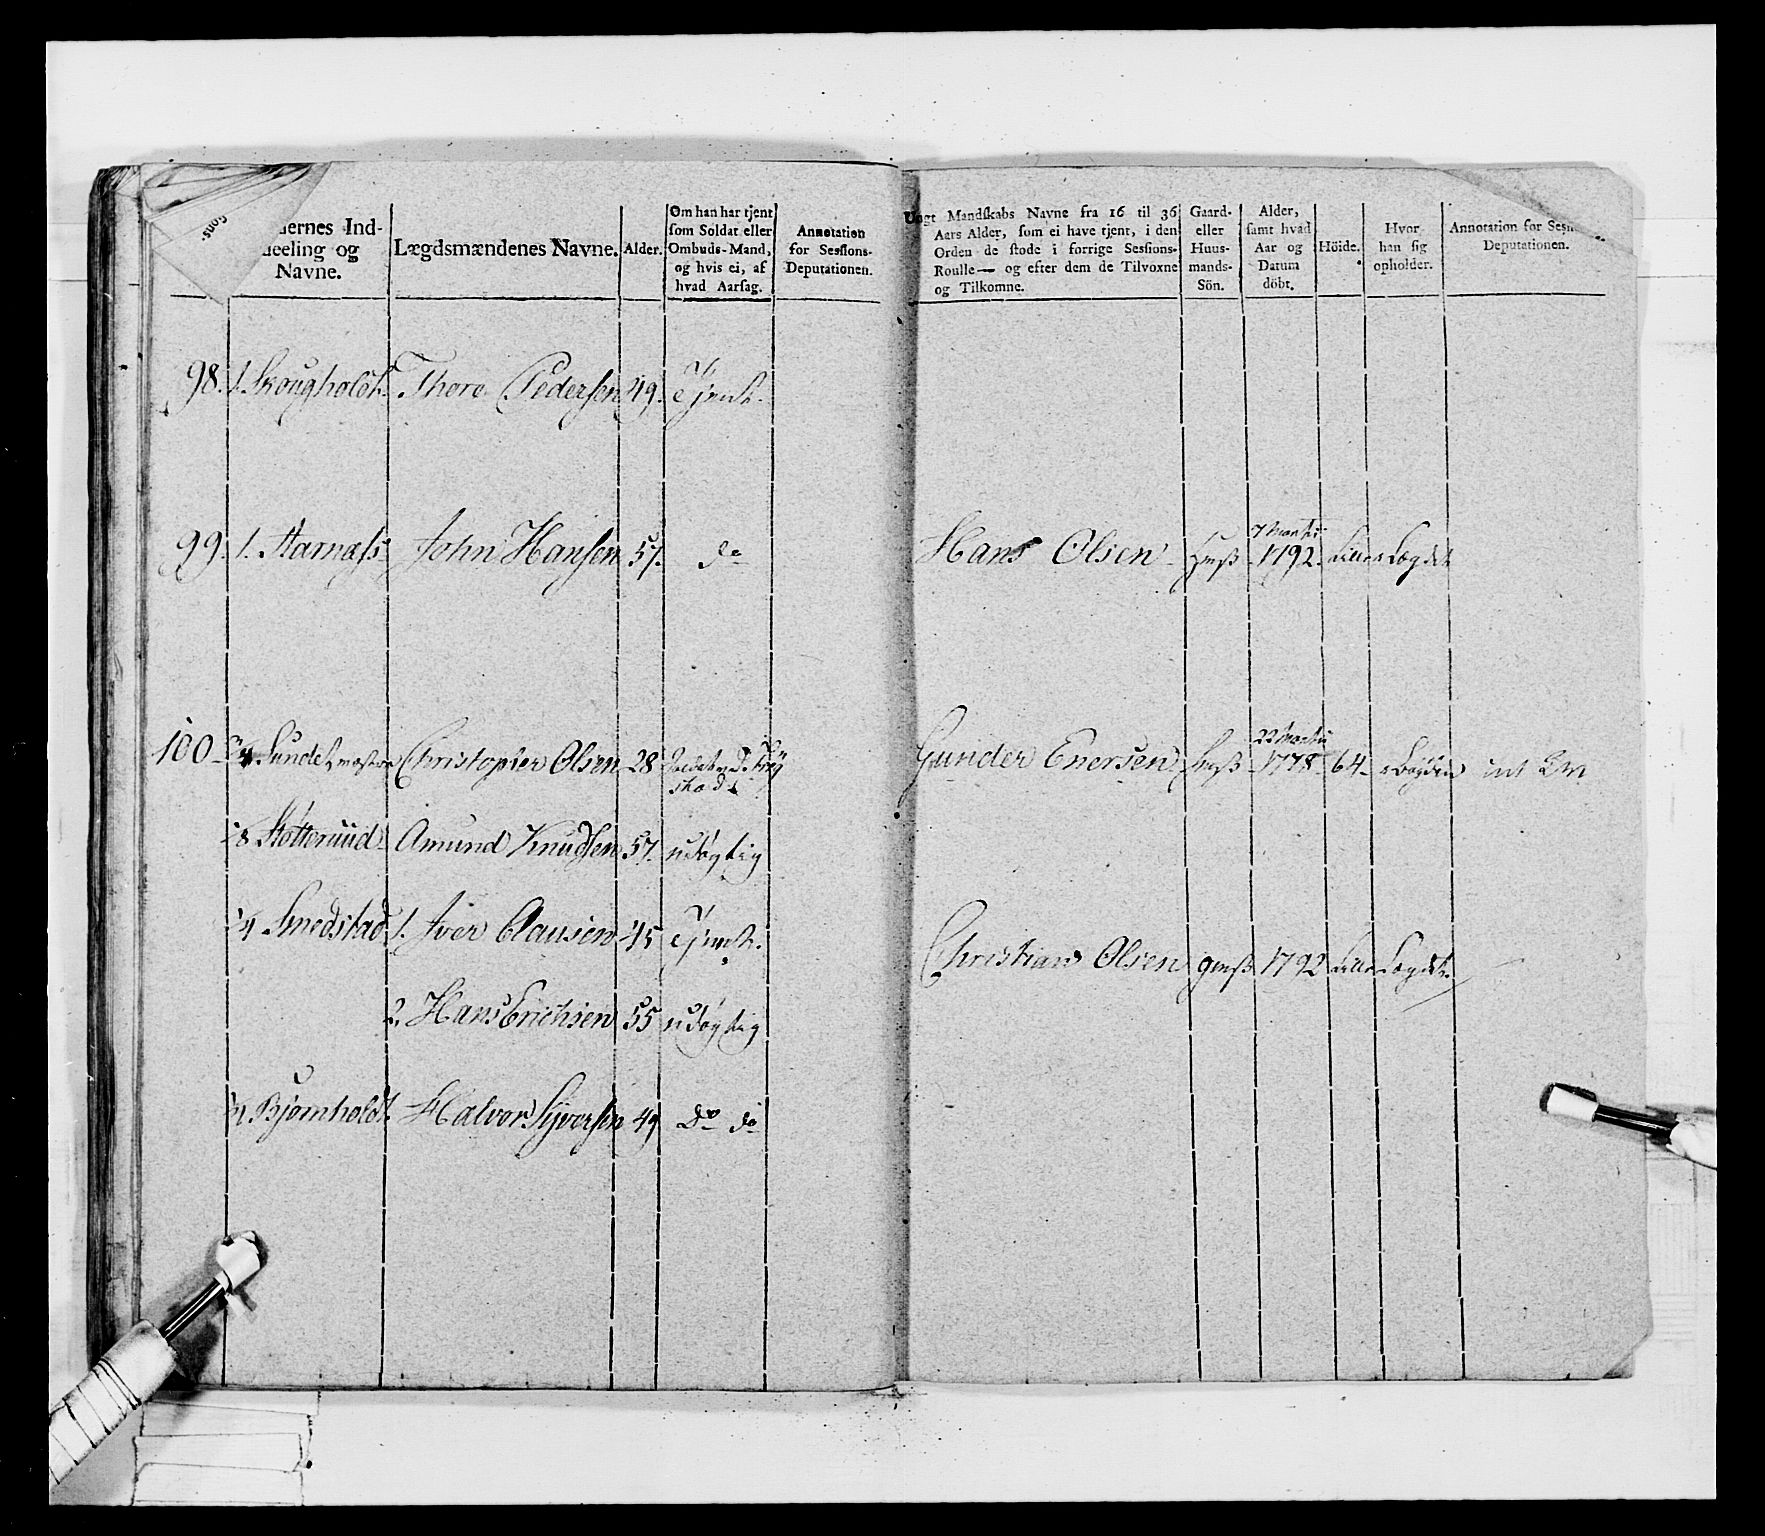 Gons-
ernes Ind-
deeling og
Navne.
Lægdsmændenes Navne.
Alder.
Om han har tjent
som Soldat eller
Ombuds-Mand,
og hvis ei, af
hvad Aarsag.
Annotation
for Sessions-
Deputationen.
Ungt Mandskabs Navne fra 16 til 36
Aars Alder, som ei have tjent, i den
Orden de stode i forrige Sessions-
Roulle— og efter dem de Tilvoxne
og Tilkomne.
Gaard-
eller
Huus-
mands-
Sön.
Alder,
samt hvad
Aar og
Datum
döbt.
Höide.
Hvor
han sig
opholder.
Annotation for Sess
Deputationen.
98. 1. Skougholdt Thore Pedersen 49. Tjent.
99. 1. Aarnæss John Hansen 57. do Hans Olsen Huuß 7 Martii 1792. Lille Lægdet
100 Sundet Christopher Olsen 28 Gunder Enersen Huuß 22 Martii 1778 64 Bøyden
1/8 Støtteruud Amund Knudsen 57. udøgtig
1/4 Smedstad 1. Iver Clausen 45 Tjent. Christian Olsen gmß 1792 Lille Lægdet.
2. Hans Erichsen 55 udøgtig
Bjørnholdt. Halvor Syversen 49 do do